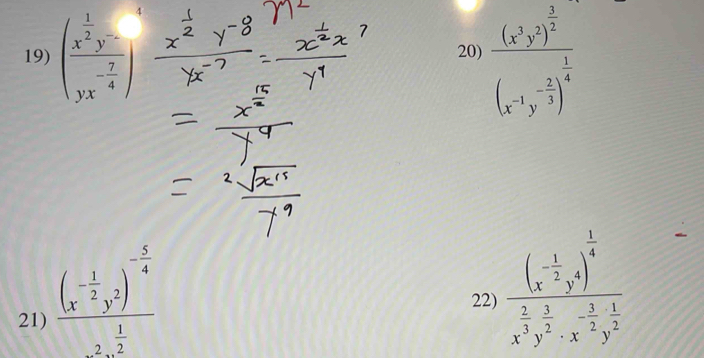 m²
19) (x^(1/2) y^(-2) / yx^(-7/4))^4
x^(1/2) y^(-8) / yx^(-7) = x^(1/2) x^7 / y^9
= x^(15/2) / y^9
= ²√x^15 / y^9
20) (x^3 y^2)^(3/2) / (x^(-1) y^(-2/3))^(1/4)
21) (x^(-1/2) y^2)^(-5/4) / x^2 y^(1/2)
22) (x^(-1/2) y^4)^(1/4) / x^(2/3) y^(3/2) · x^(-3/2) y^(1/2)